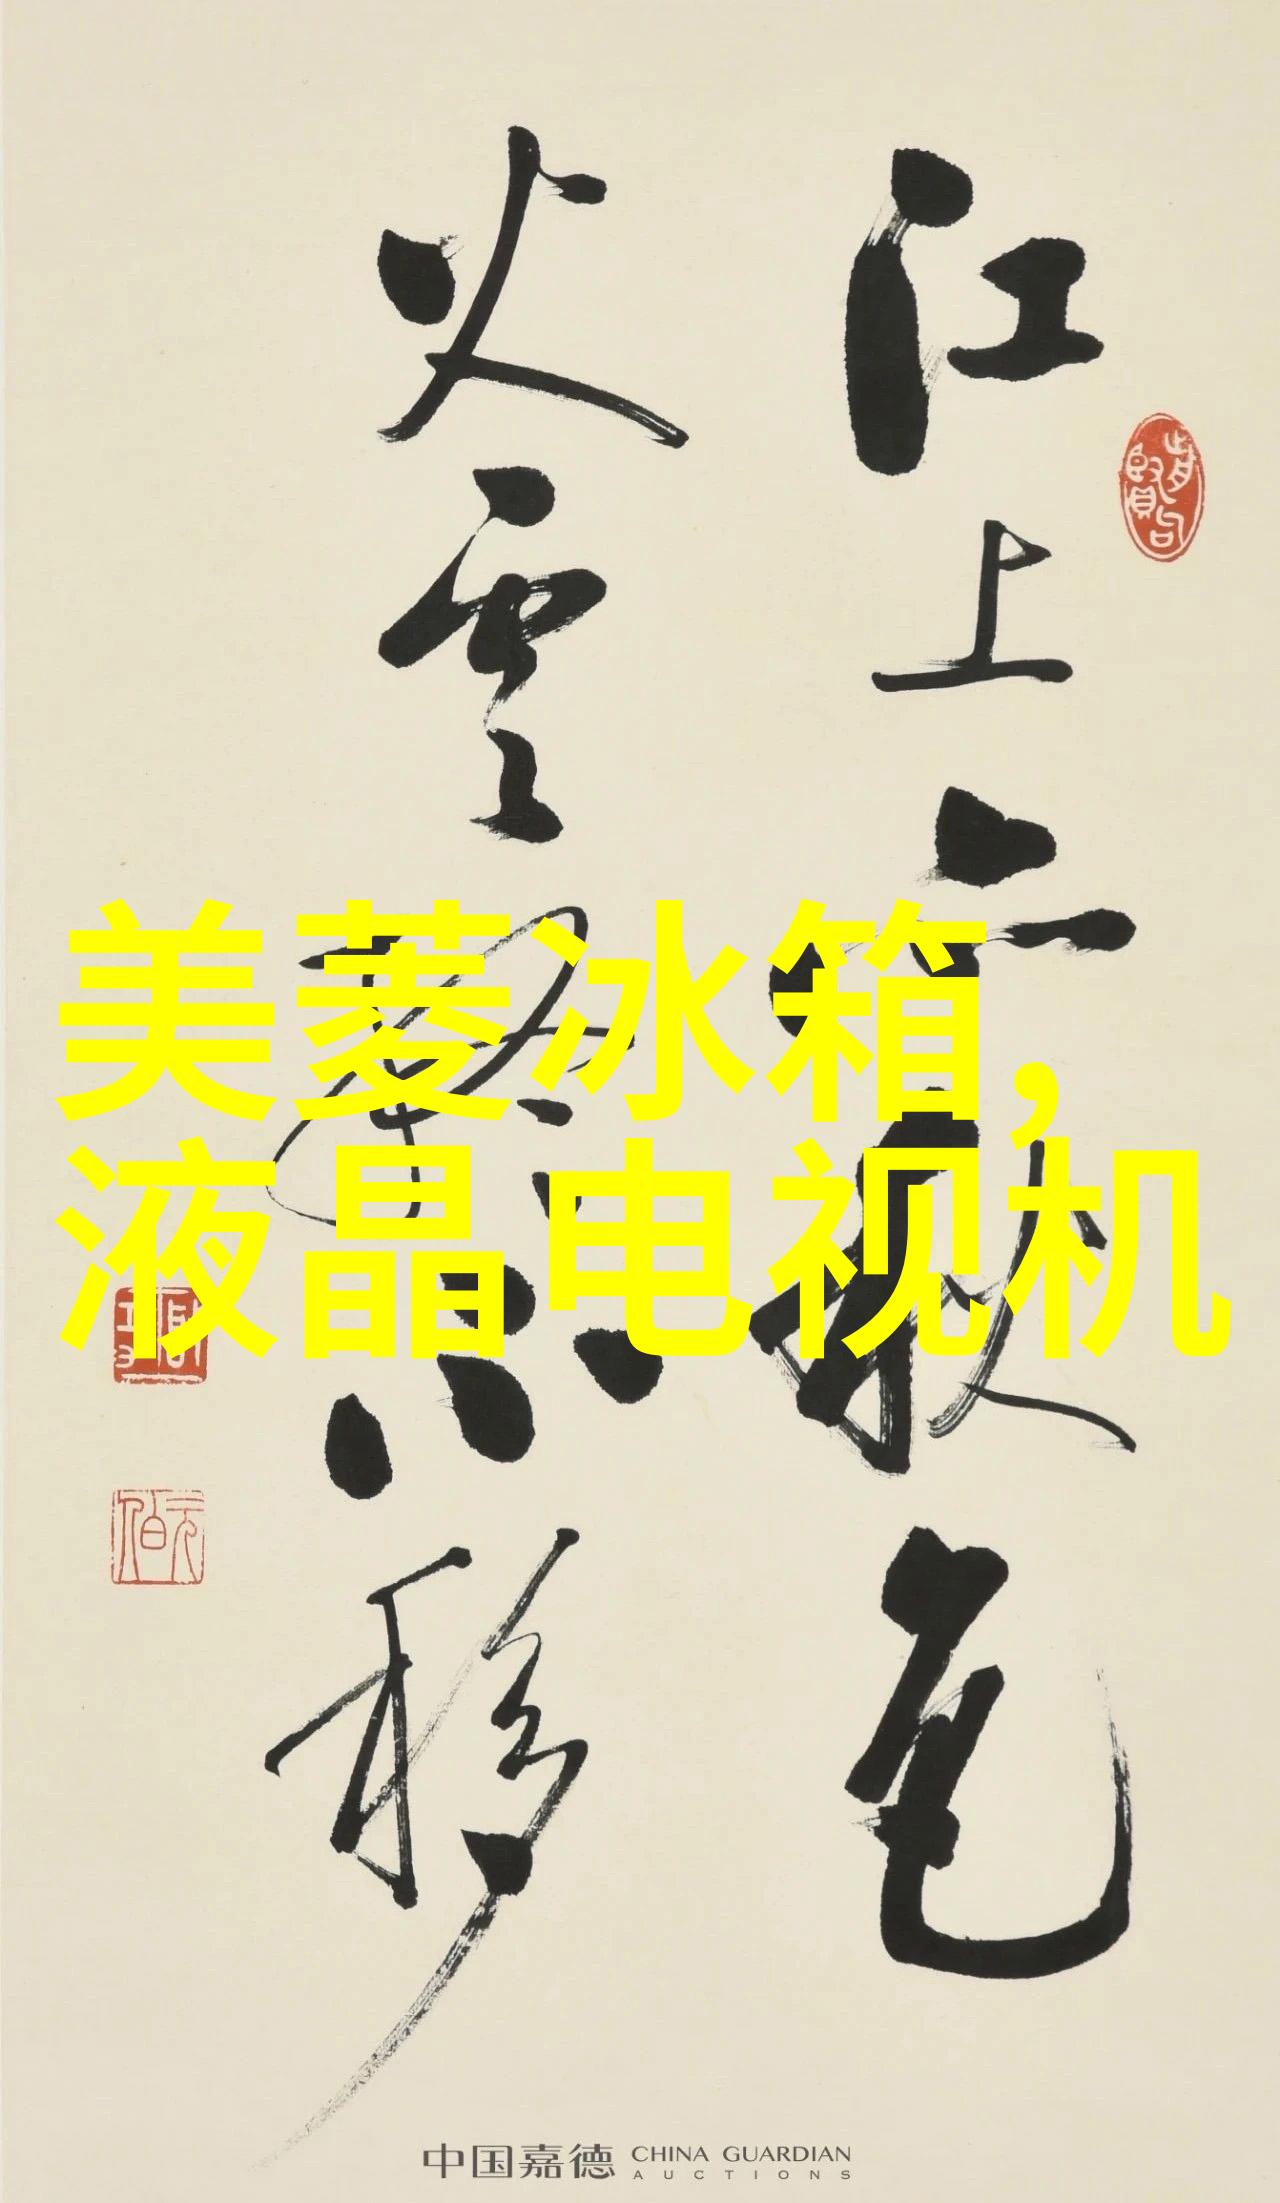 江上亦秋色
火雲終不移
美菱冰箱,
液晶电视机
中国嘉德 CHINA GUARDIAN
AUCTIONS